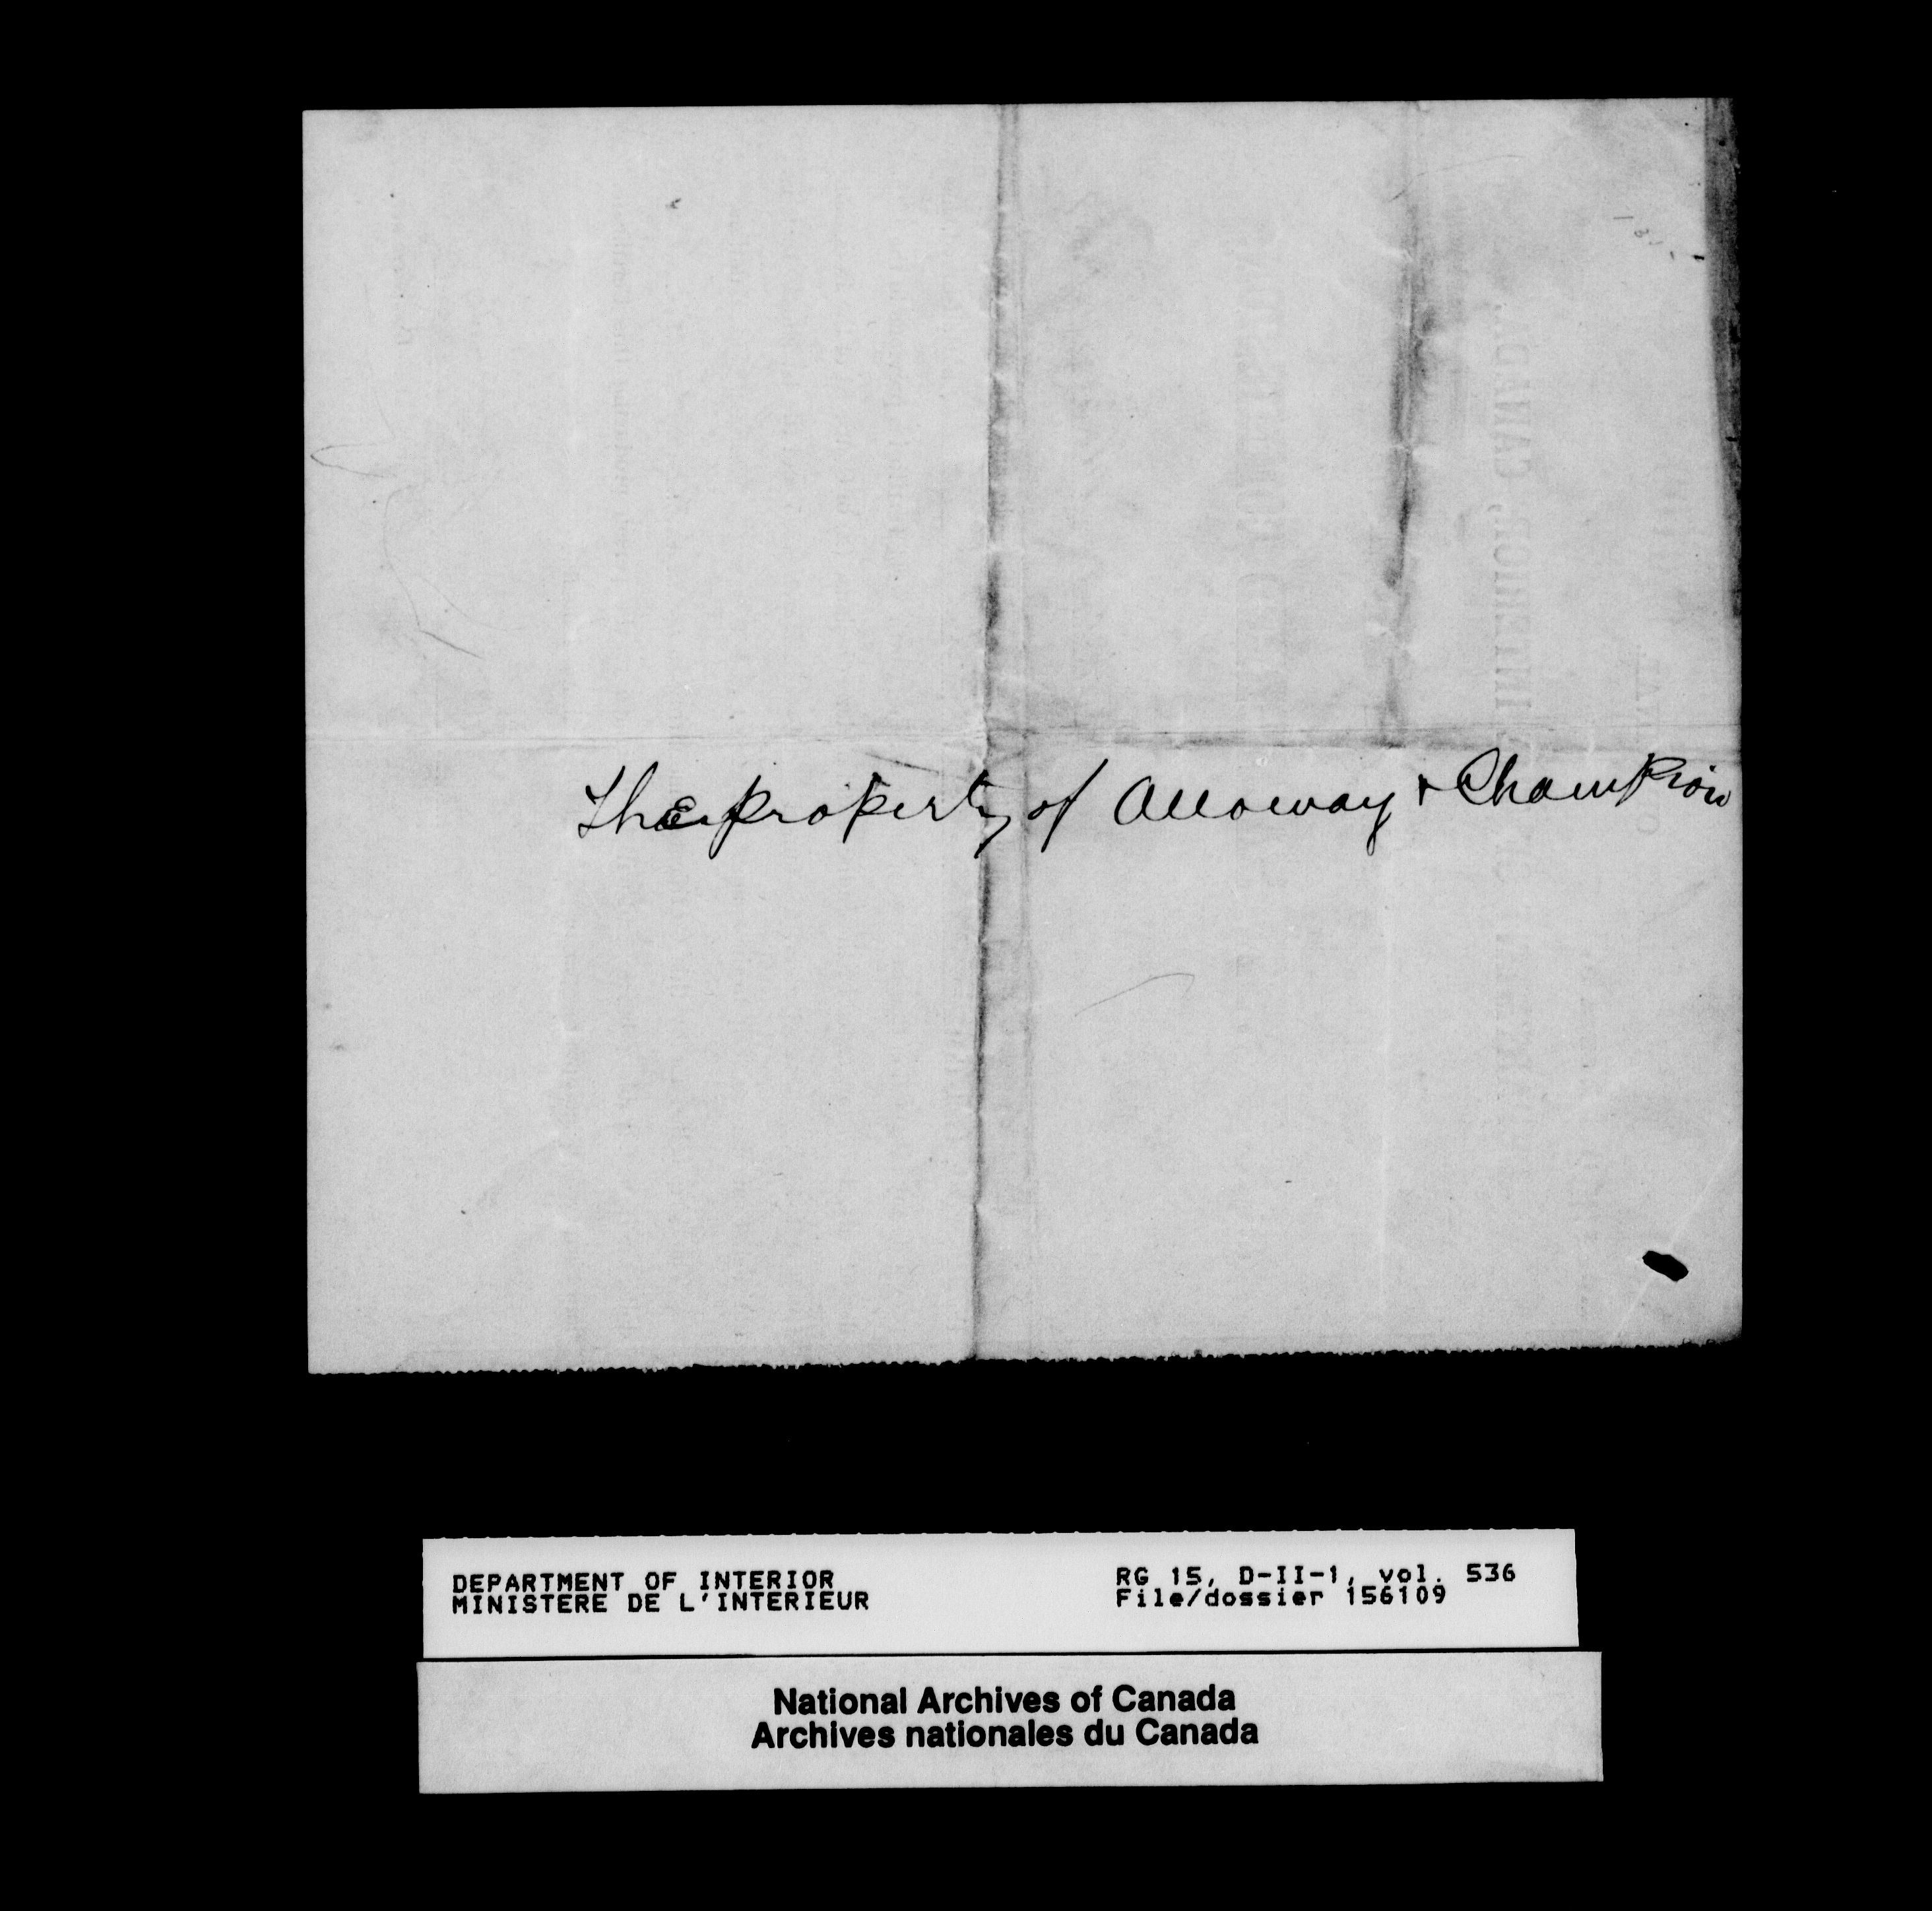 The property of Alloway & Champion
DEPARTMENT OF INTERIOR
MINISTERE DE L'INTERIEUR
RG 15, D-II-1, vol. 536
File/dossier 156109
National Archives of Canada
Archives nationales du Canada